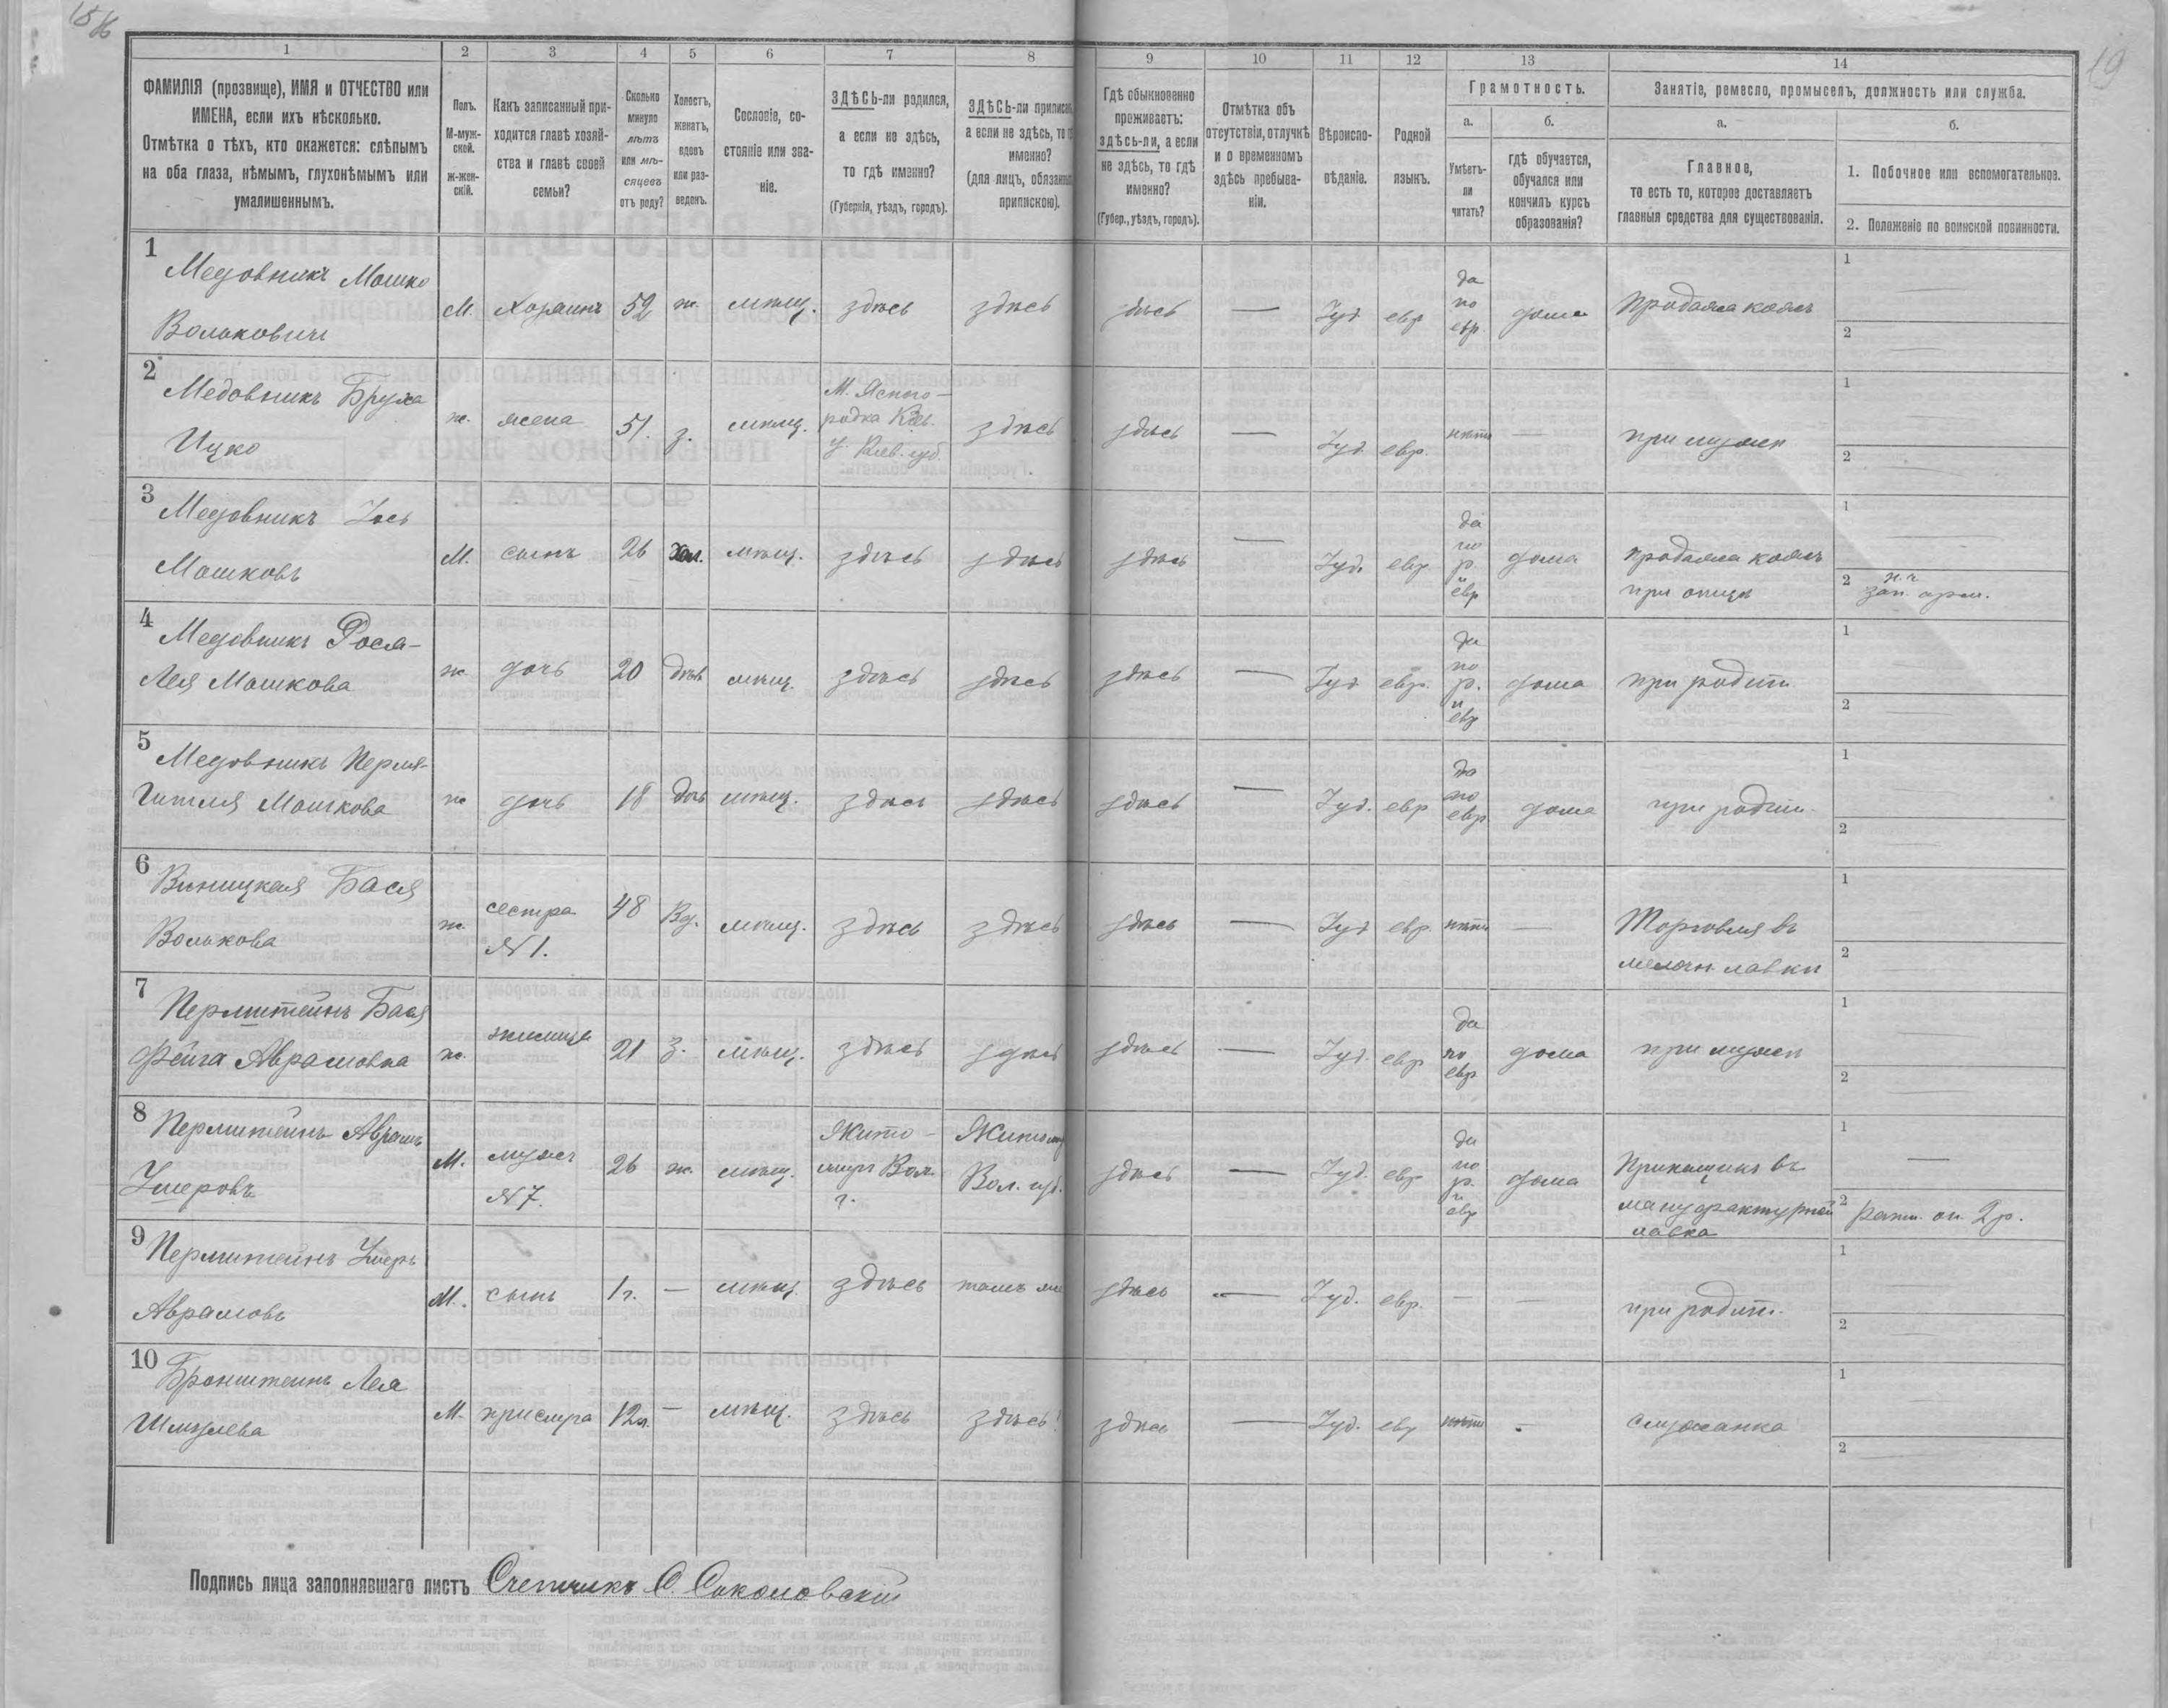 19
1 2 3 4 5 6 7 8 9 10 11 12 13 14
ФАМИЛІЯ (прозвище), ИМЯ и ОТЧЕСТВО или
ИМЕНА, если ихъ нѣсколько.
Отмѣтка о тѣхъ, кто окажется: слѣпымъ
на оба глаза, нѣмымъ, глухонѣмымъ или
умалишеннымъ.
Полъ.
М-муж-
ской.
ж-жен-
скій.
Какъ записанный при-
ходится главѣ хозяй-
ства и главѣ своей
семьи?
Сколько
минуло
лѣтъ
или мѣ-
сяцевъ
отъ роду?
Холостъ,
женатъ,
вдовъ
или раз-
веденъ.
Сословіе, со-
стояніе или зва-
ніе.
ЗДѢСЬ-ли родился,
а если не здѣсь,
то гдѣ именно?
(Губернія, уѣздъ, городъ).
ЗДѢСЬ-ли приписанъ
а если не здѣсь, то
именно?
(для лицъ, обязанныхъ
припискою).
Гдѣ обыкновенно
проживаетъ:
здѣсь-ли, а если
не здѣсь, то гдѣ
именно?
(Губер., уѣздъ, городъ).
Отмѣтка объ
отсутствіи, отлучкѣ
и о временномъ
здѣсь пребыва-
ніи.
Вѣроиспо-
вѣданіе.
Родной
языкъ.
Грамотность.
а.
Умѣетъ-
ли
читать?
б.
гдѣ обучается,
обучался или
кончилъ курсъ
образованія?
Занятіе, ремесло, промыселъ, должность или служба.
а.
Главное,
то есть то, которое доставляетъ
главныя средства для существованія.
б.
1. Побочное или вспомогательное.
2. Положеніе по воинской повинности.
1 Медовникъ Мошко
Вольковичъ
М. Хозяинъ 52 ж. мѣщ. здѣсь здѣсь здѣсь — Іуд. евр да по евр. дома продажа кожъ
1 —
2 —
2 Медовникъ Бруха
Ицко
ж. жена 51. з. мѣщ. М. Ясного-
родка Кіев.
у. Кіев. губ. здѣсь здѣсь — Іуд. евр. нѣтъ — при мужѣ
1 —
2 —
3 Медовникъ Іось
Мошковъ
М. сынъ 26 Хол. мѣщ. здѣсь здѣсь здѣсь — Іуд. евр да по р. и евр дома продажа кожъ
при отцѣ
1
2 зап. арм.
4 Медовникъ Рося-
Лея Мошкова
ж дочь 20 дѣв мѣщ. здѣсь здѣсь здѣсь — Іуд. евр. да по р. и евр дома при родит.
1 —
2 —
5 Медовникъ Перля-
Гителя Мошкова
ж дочь 18 дѣв мѣщ. здѣсь здѣсь здѣсь — Іуд. евр да по евр дома при родит.
1 —
2 —
6 Виницкая Бася
Волькова
ж. сестра
N 1. 48 Вд. мѣщ. здѣсь здѣсь здѣсь — Іуд. евр. нѣтъ — Торговля въ
мелочн. лавки
1 —
2 —
7 Перлштейнъ Бася
Фейга Аврамовна
ж. жилица 21 з. мѣщ. здѣсь здѣсь здѣсь — Іуд. евр да по евр. дома при мужѣ
1 —
2 —
8 Перлштейнъ Аврамъ
Ушеровъ
М. мужъ
N 7. 26 ж. мѣщ. Жито-
миръ Вол.
г. Житомир
Вол. губ. здѣсь — Іуд. евр. да по р. и евр дома Прикащикъ въ
мануфактурной
лавка
1 —
2 ратн. оп. 2 р.
9 Перлштейнъ Ушеръ
Аврамовъ
М. сынъ 1 г. — мѣщ. здѣсь тамъ же здѣсь — Іуд. евр. — — при родит.
1 —
2 —
10 Бронштейнъ Лея
Шмулева
М. прислуга 12 л. — мѣщ. здѣсь здѣсь здѣсь — Іуд. евр нѣтъ — служанка
1
2
Подпись лица заполнявшаго листъ Счетчикъ С. Соколовскій